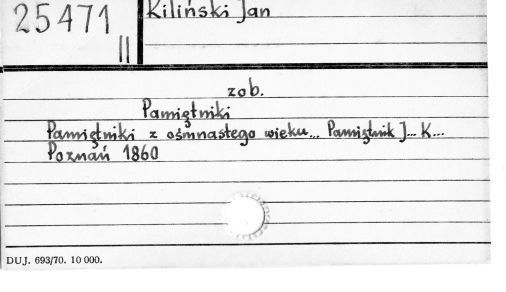 25471
II
Kiliński Jan
zob.
Pamiętniki
Pamiętniki z ośmnastego wieku... Pamiętnik J... K...
Poznań 1860
DUJ. 693/70. 10 000.